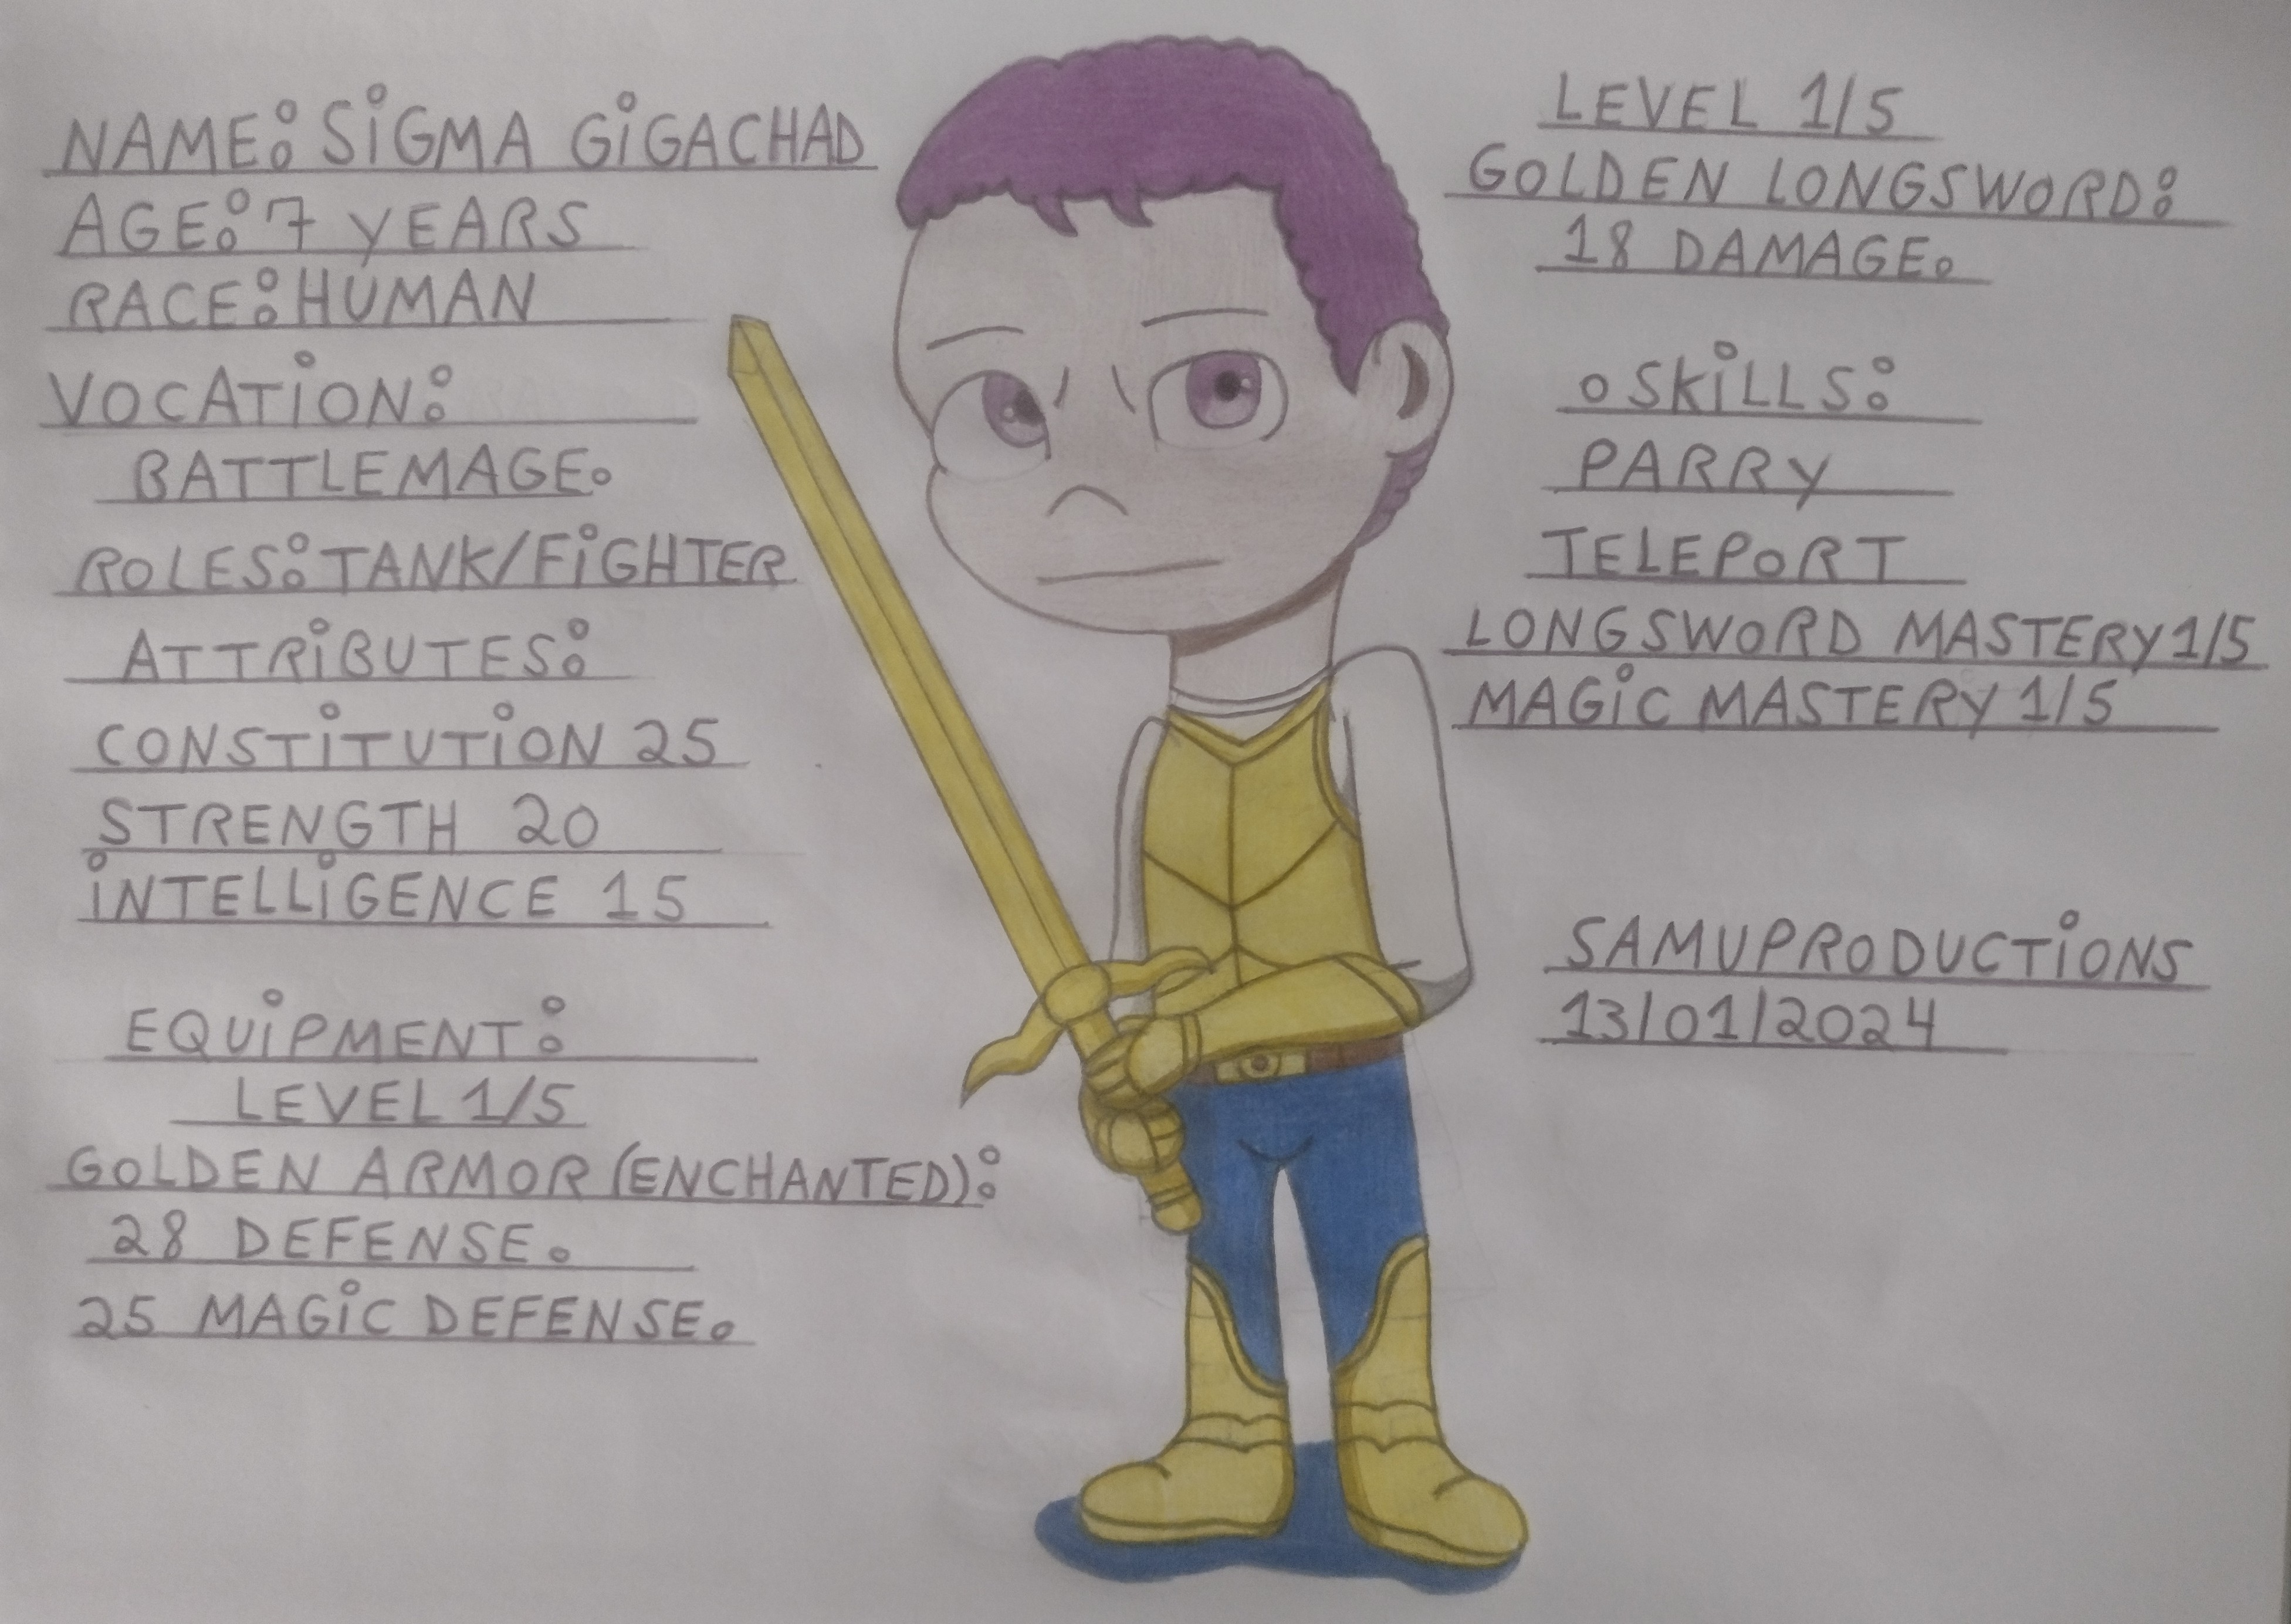 NAME: SiGMA GiGACHAD
AGE: 7 YEARS
RACE: HUMAN
VOCATiON:
BATTLEMAGE.
ROLES: TANK/FiGHTER
ATTRiBUTES:
CONSTiTUTiON 25
STRENGTH 20
iNTELLiGENCE 15
EQUiPMENT:
LEVEL 1/5
GOLDEN ARMOR (ENCHANTED):
28 DEFENSE.
25 MAGiC DEFENSE.
LEVEL 1/5
GOLDEN LONGSWORD:
18 DAMAGE.
o SKiLLS:
PARRY
TELEPORT
LONGSWORD MASTERY 1/5
MAGiC MASTERY 1/5
SAMUPRODUCTiONS
13/01/2024